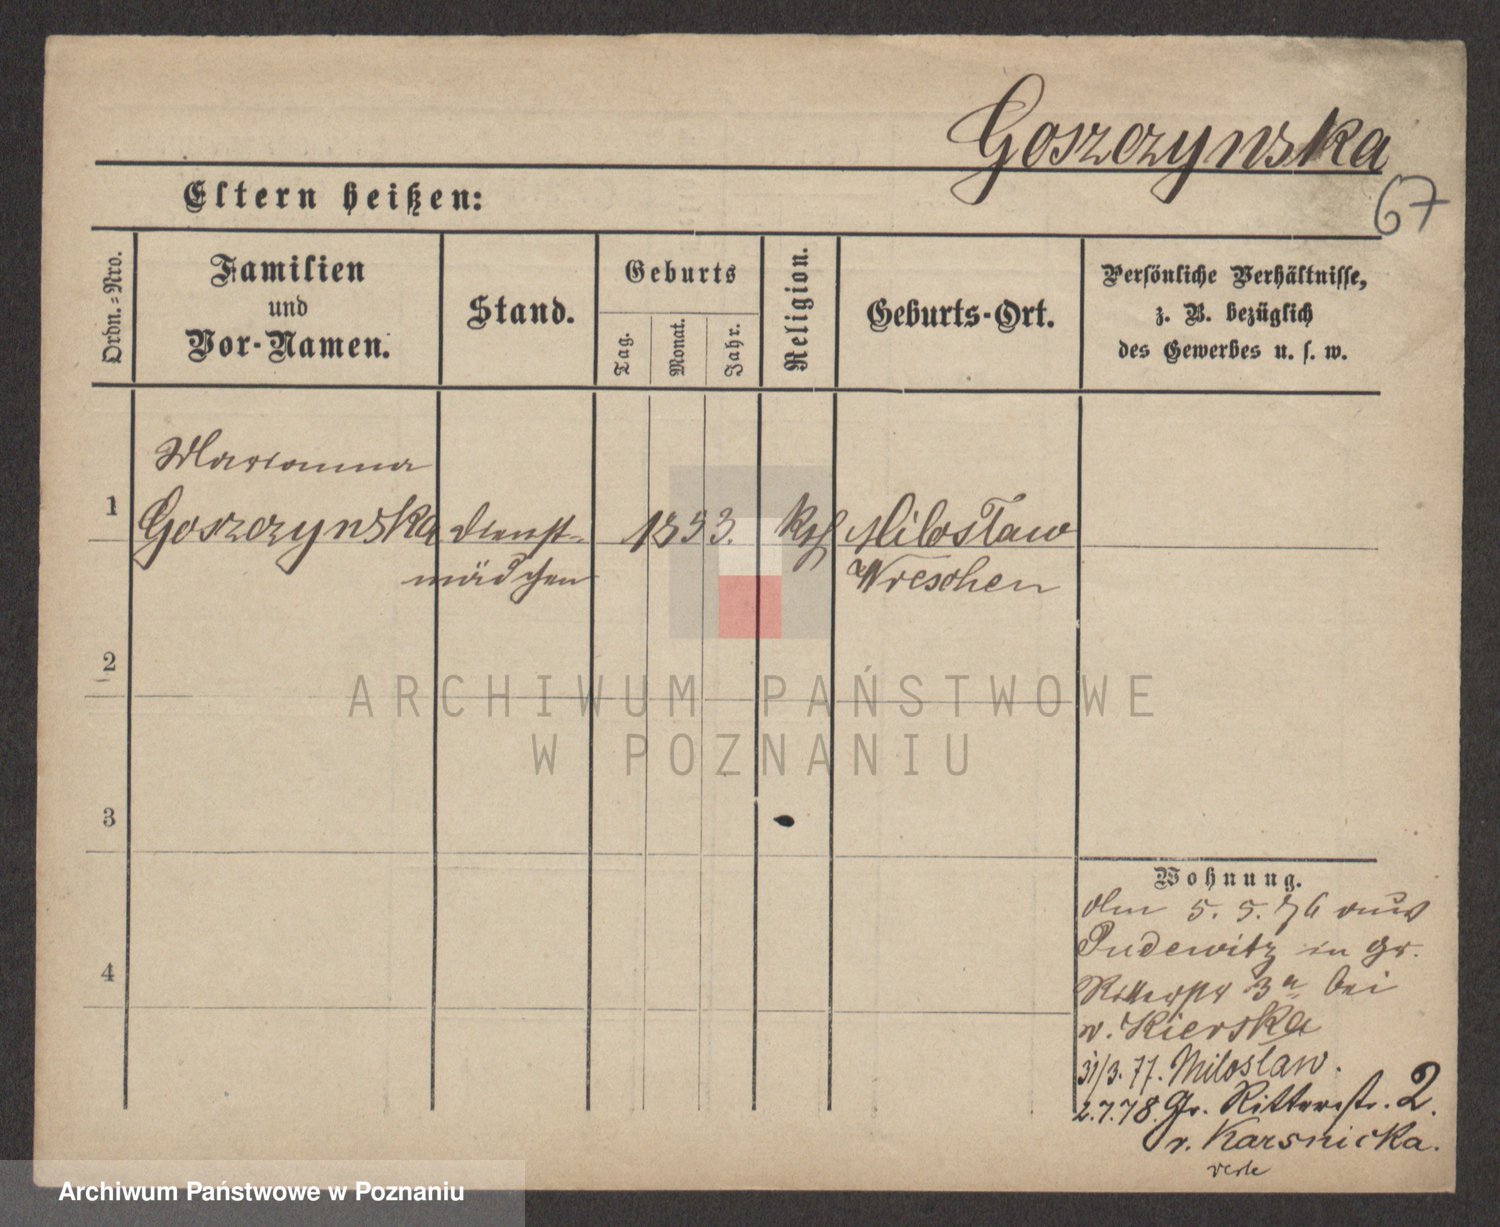 Goszczynska
67
Eltern heißen:
Ordn.-Nro.
Familien
und
Vor-Namen.
Stand.
Geburts
Tag.
Monat.
Jahr.
Religion.
Geburts-Ort.
Persönliche Verhältnisse,
z. B. bezüglich
des Gewerbes u. s. w.
Marianna
1 Goszczynska Dienst- 1853. Kth Miloslaw
mädchen Wreschen
2
ARCHIWUM PAŃSTWOWE
W POZNANIU
3
4
Wohnung.
5. 5. 76 aus
Pudewitz in Gr.
Ritterstr 3a bei
v. Kierska
31/3. 77. Miloslaw.
2.7.78. Gr. Ritterstr. 2.
v. Karsnicka.
Archiwum Państwowe w Poznaniu